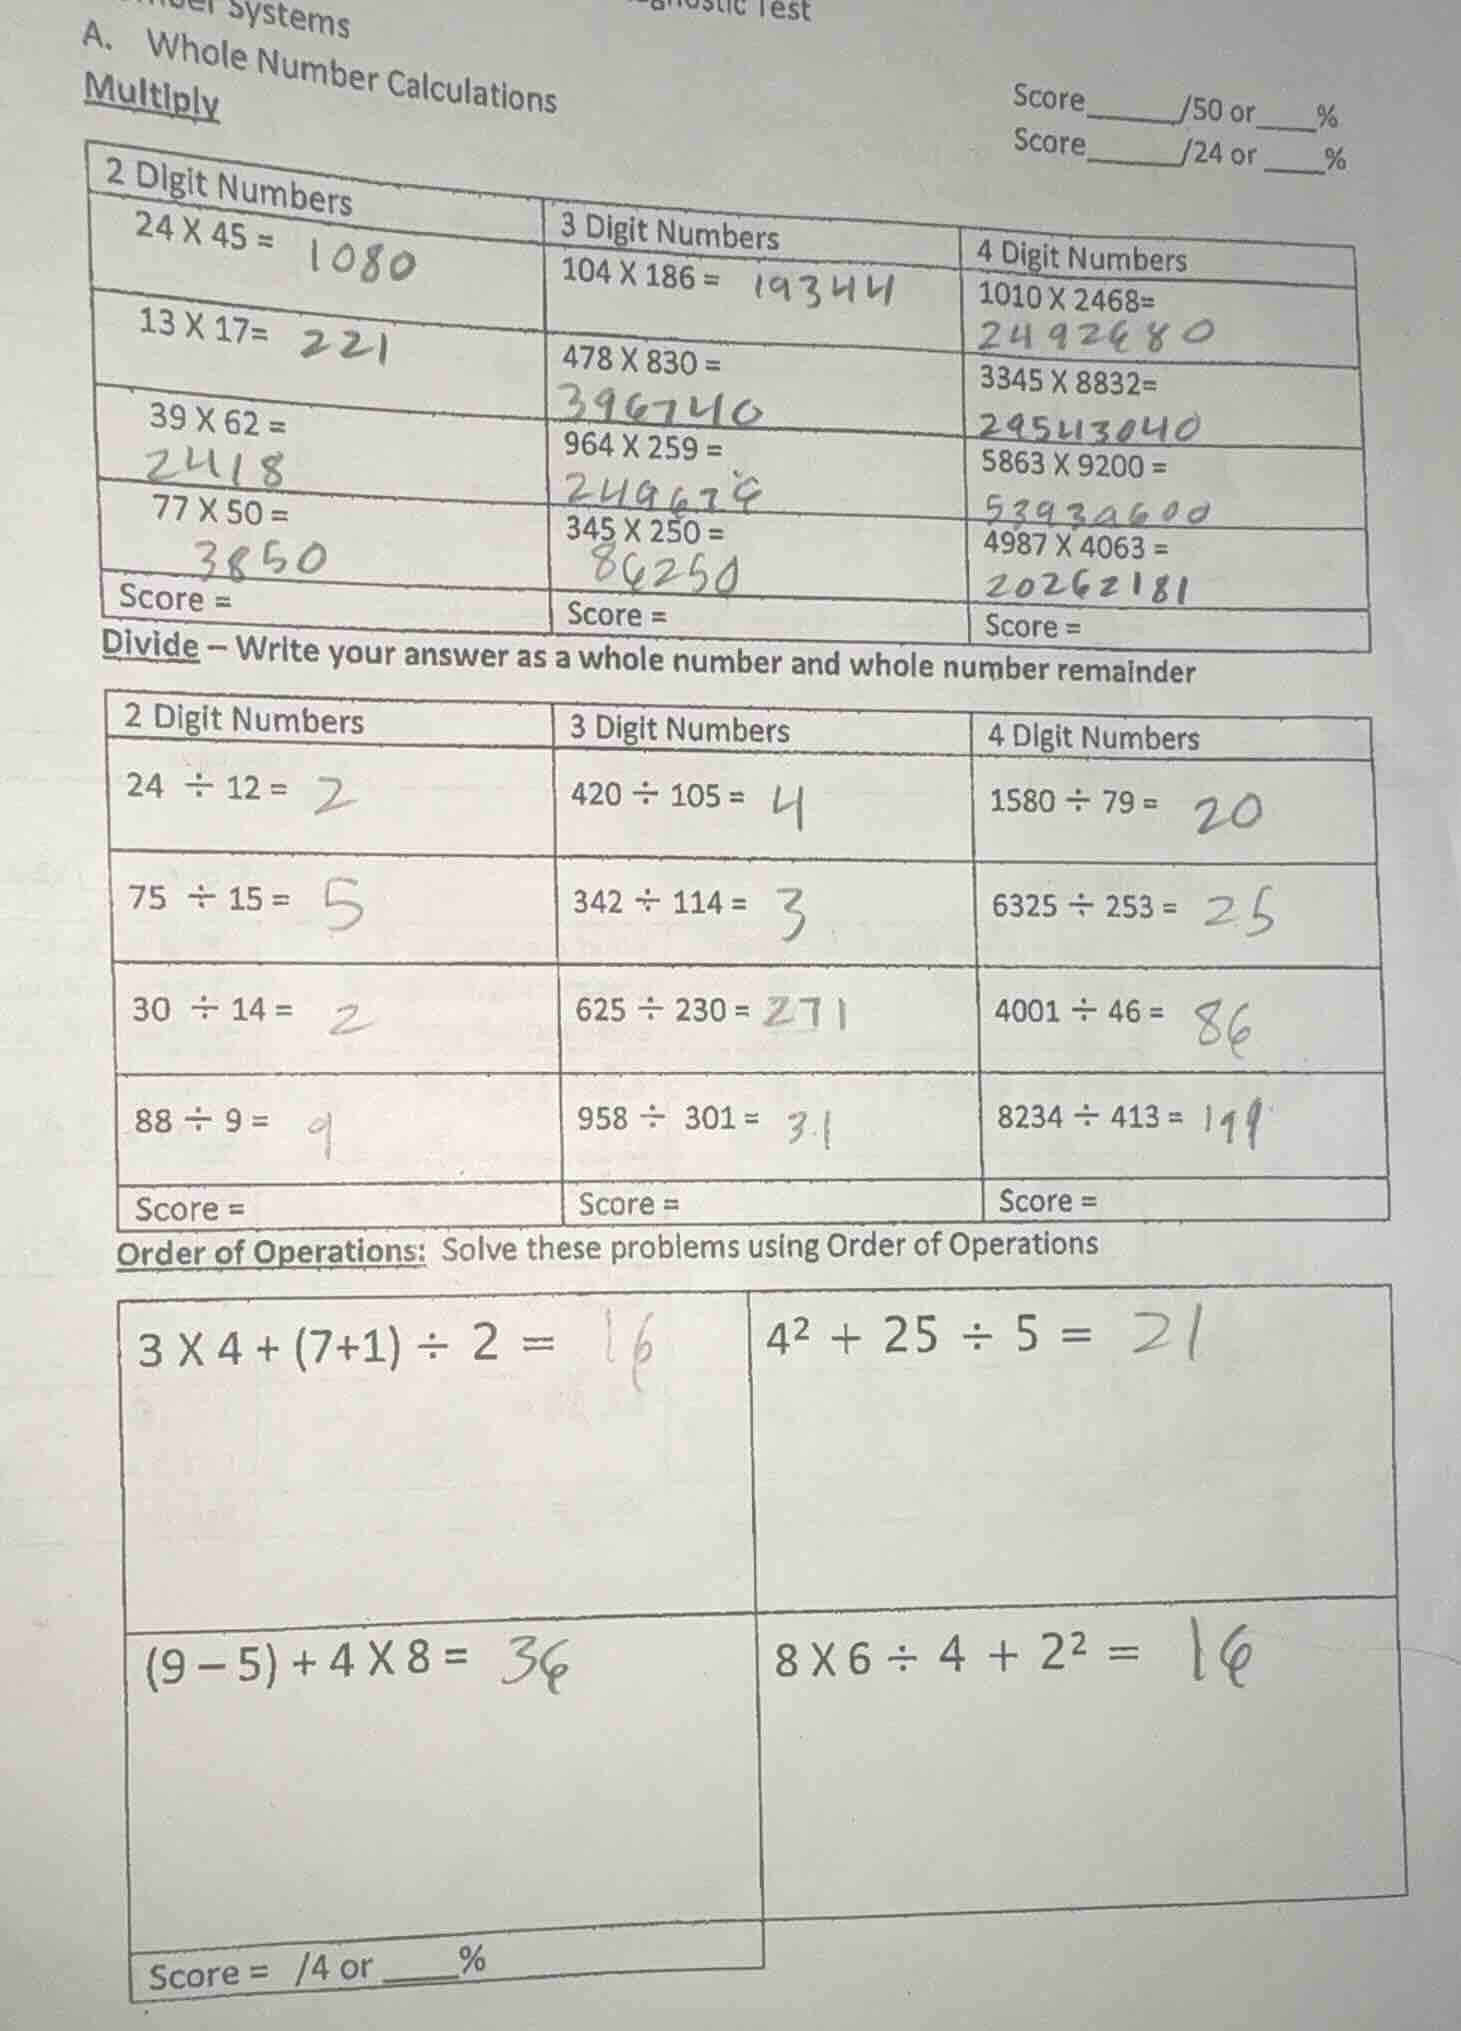 Systems
Test
A. Whole Number Calculations
Multiply
Score_____/50 or____%
Score_____/24 or ____%
2 Digit Numbers
3 Digit Numbers
4 Digit Numbers
24 X 45 = 1080
104 X 186 = 19344
1010 X 2468=
2492680
13 X 17= 221
478 X 830 =
396740
3345 X 8832=
29543040
39 X 62 =
2418
964 X 259 =
249676
5863 X 9200 =
53939600
77 X 50 =
3850
345 X 250 =
86250
4987 X 4063 =
20262181
Score =
Score =
Score =
Divide – Write your answer as a whole number and whole number remainder
2 Digit Numbers
3 Digit Numbers
4 Digit Numbers
24 ÷ 12 = 2
420 ÷ 105 = 4
1580 ÷ 79 = 20
75 ÷ 15 = 5
342 ÷ 114 = 3
6325 ÷ 253 = 25
30 ÷ 14 = 2
625 ÷ 230 = 271
4001 ÷ 46 = 86
88 ÷ 9 = 9
958 ÷ 301 = 3.1
8234 ÷ 413 = 199
Score =
Score =
Score =
Order of Operations: Solve these problems using Order of Operations
3 X 4 + (7+1) ÷ 2 = 16
4² + 25 ÷ 5 = 21
(9 – 5) + 4 X 8 = 36
8 X 6 ÷ 4 + 2² = 16
Score = /4 or ____%